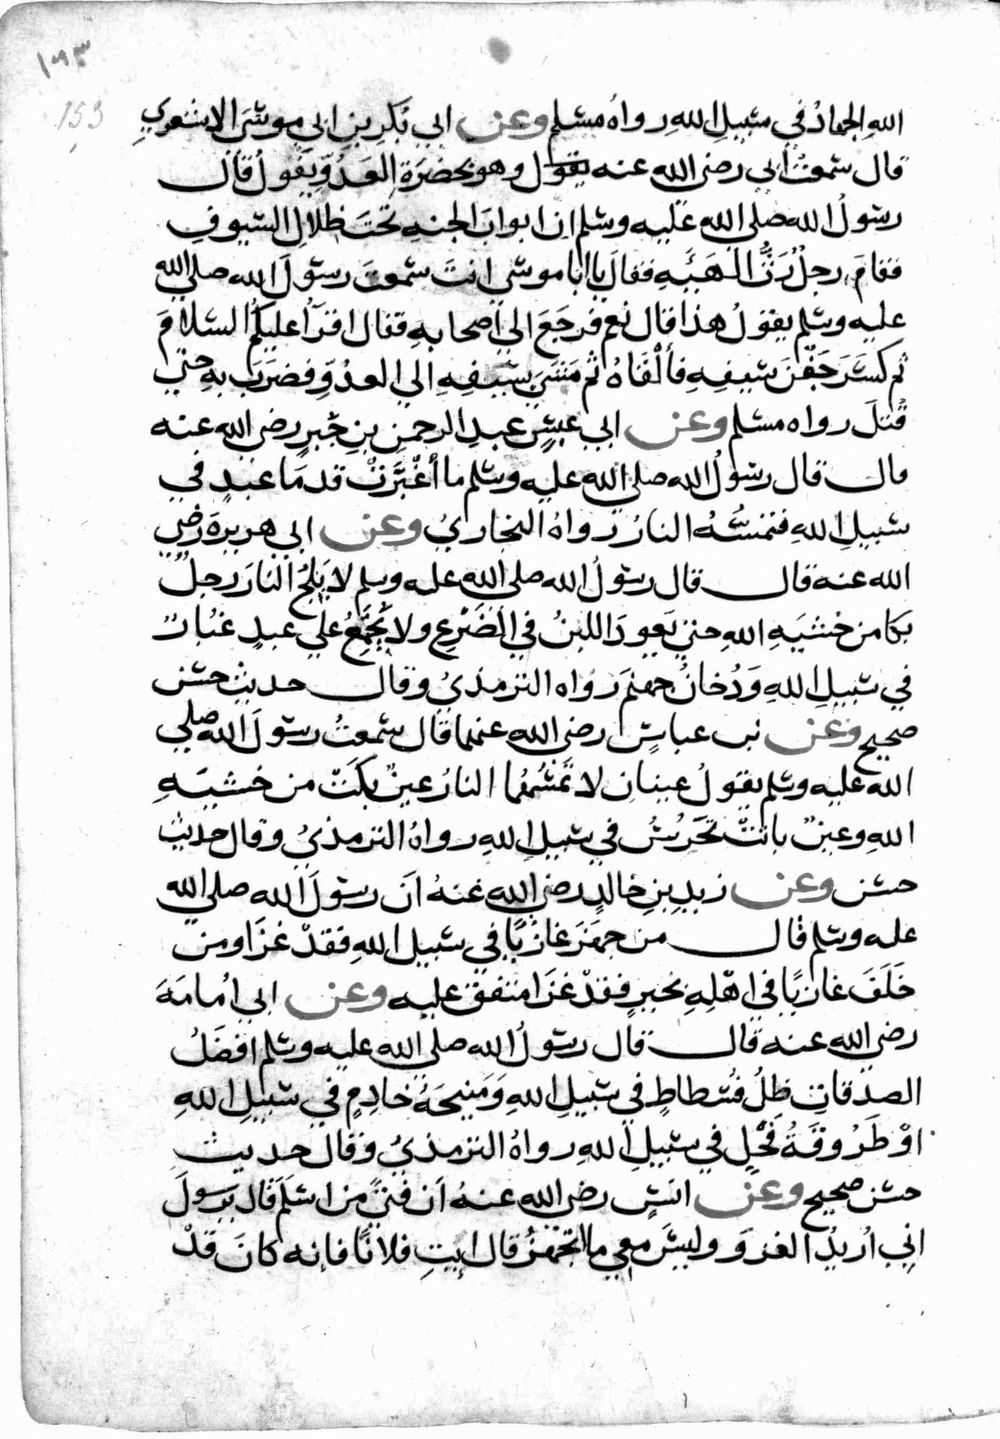 ١٥٣
153
الله الجهادُ في سَبيلِ اللهِ رواهُ مسْلم وعن ابي بَكرِ بنِ ابي موسَى الاشعري
قال سَمعتُ أبى رضى الله عنه يقول وهو بحَضرَةِ العَدُوِّ يَقولُ قال
رسُولُ الله صلى الله عَليه وسَلم ان ابوابَ الجنهِ تحتَ ظِلالِ السّيوفِ
فقامَ رجلٌ رَثُّ الهَيْئَهِ فقالَ يا ابا موسَى انتَ سَمعتَ رسُولَ الله صلى الله
عليه وسَلم يقولُ هذا قال نعم فرجَعَ الى اصحابهِ فقال اقرَأُ عليكُم السّلامَ
ثم كسَرَ جَفْنَ سَيفِهِ فألْقَاهُ ثم مَشَى بسَيفِهِ الى العدُوِّ فضرَبَ بهِ حتى
قُتلَ رواه مسْلم وعن ابي عبسٍ عبدِ الرحمنِ بنِ جَبرٍ رضى الله عنه
قال قال رسُولُ الله صلى الله عليه وسَلم ما اغْبَرَّتْ قدمَا عبدٍ في
سَبيلِ اللهِ فتمسَّهُ النارُ رواهُ البخاريُ وعن ابى هريرةَ رضي
الله عنه قال قال رسُولُ الله صلى الله عليه وسلم لا يَلِجُ النارَ رجلٌ
بكا من خشيَهِ اللهِ حتى يَعودَ اللبنُ في الضَّرْعِ ولا يَجْتَمِعُ على عبدٍ غُبارٌ
في سَبيلِ اللهِ وَدُخانُ جهنمَ رواه الترمذيُ وقال حديث حسَن
صحيح وعن بن عباسٍ رضى الله عنهما قال سَمعتُ رسُولَ الله صلى
الله عليه وسَلم يقولُ عينانِ لا تَمَسُّهُما النارُ عينٌ بكَتْ من خشيَهِ
اللهِ وعينٌ باتتْ تَحْرُسُ في سَبيلِ اللهِ رواهُ الترمذيُ وقال حديث
حسَن وعن زيدِ بنِ خالدٍ رضى الله عنهُ انَ رسُولَ الله صلى الله
عليه وسَلم قال من جهزَ غازيًا في سَبيلِ اللهِ فقدْ غزَا ومن
خَلَفَ غازيًا في اهْلِهِ بخيرٍ فقدْ غزَا متفق عليه وعن ابي اُمامَهَ
رضى الله عنه قال قال رسُولُ الله صلى الله عليه وسَلم افضَلُ
الصدقاتِ ظِلُ فُسْطاطٍ في سَبيلِ اللهِ وَمَنيحَةُ خادِمٍ في سَبيلِ اللهِ
اوْ طَرُوقَةُ فَحْلٍ في سَبيلِ اللهِ رواهُ الترمذيُ وقال حديث
حسَن صحيح وعن انسٍ رضى الله عنهُ ان فتىً من اسْلَم قال يرسولَ
اني اُريدُ الغزوَ وليسَ معي ما اتجهزُ قال ايتِ فلانًا فانه كانَ قدْ